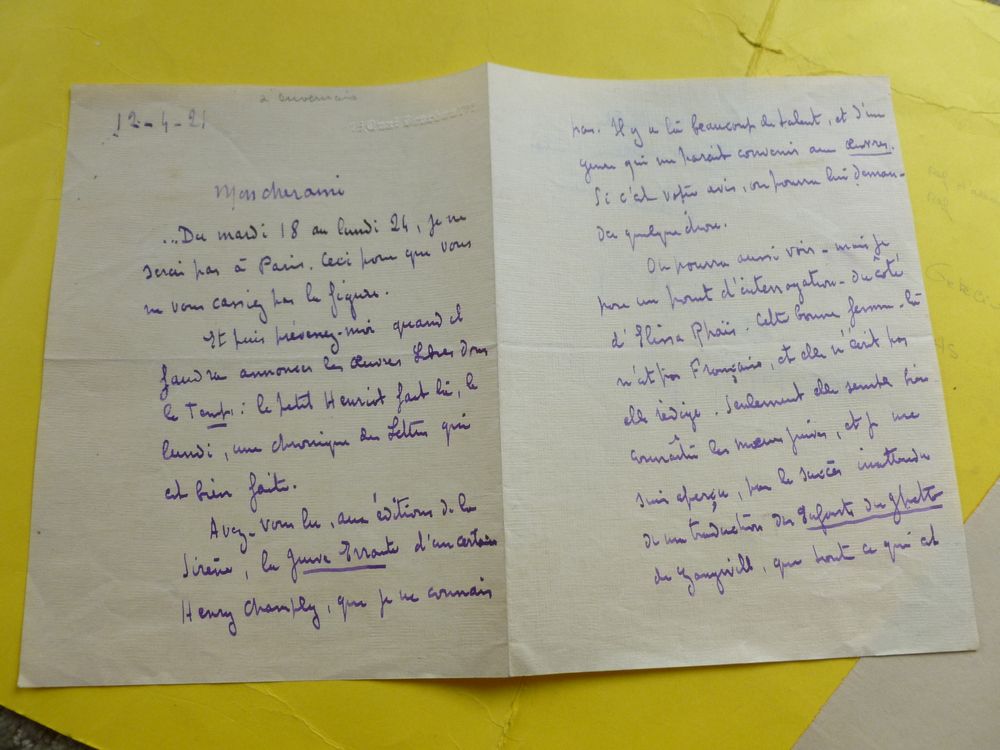 12-4-21
Mon cher ami
... Du mardi 18 au lundi 24, je ne
serai pas à Paris. Ceci pour que vous
ne vous cassiez pas la figure.
Et puis prévenez-moi quand il
faudra annoncer les Œuvres Libres dans
le Temps : le petit Henriot fait là, le
lundi, une chronique des Lettres qui
est bien faite.
Avez-vous lu, aux éditions de la
Sirène, la Juive Errante d'un certain
Henry Champly, que je ne connais
pas. Il y a là beaucoup de talent, et d'un
genre qui me paraît convenir aux Œuvres.
Si c'est votre avis, on pourra lui deman-
der quelque chose.
On pourra aussi voir - mais je
pose un point d'interrogation - du côté
d'Elissa Rhaïs. Cette bonne femme-là
n'est pas Française, et elle n'écrit pas
elle rédige. Seulement elle semble bien
connaître les mœurs juives, et je me
suis aperçu, par le succès inattendu
de ma traduction des Enfants du Ghetto
de Zangwill, que tout ce qui est